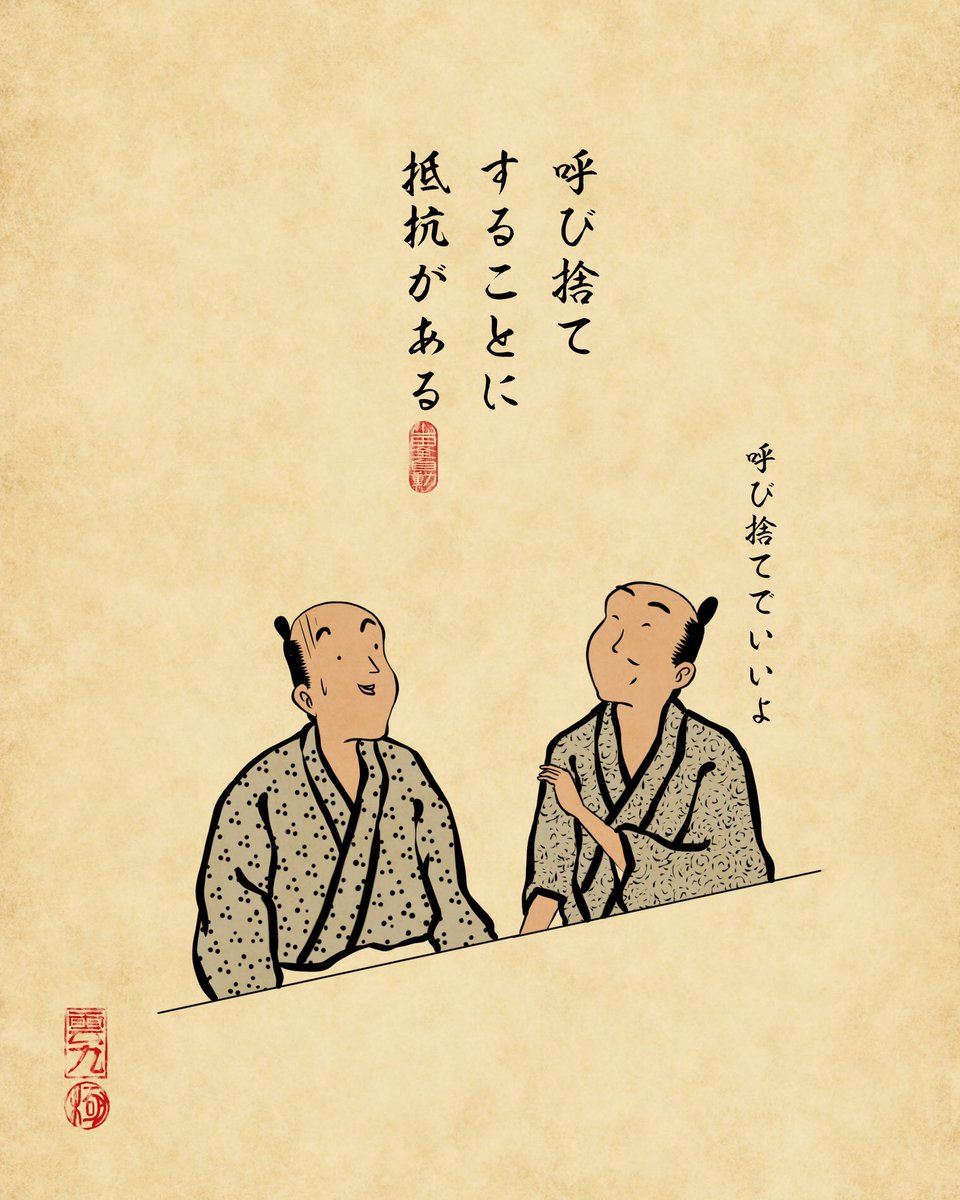 呼び捨て
することに
抵抗がある
呼び捨てでいいよ